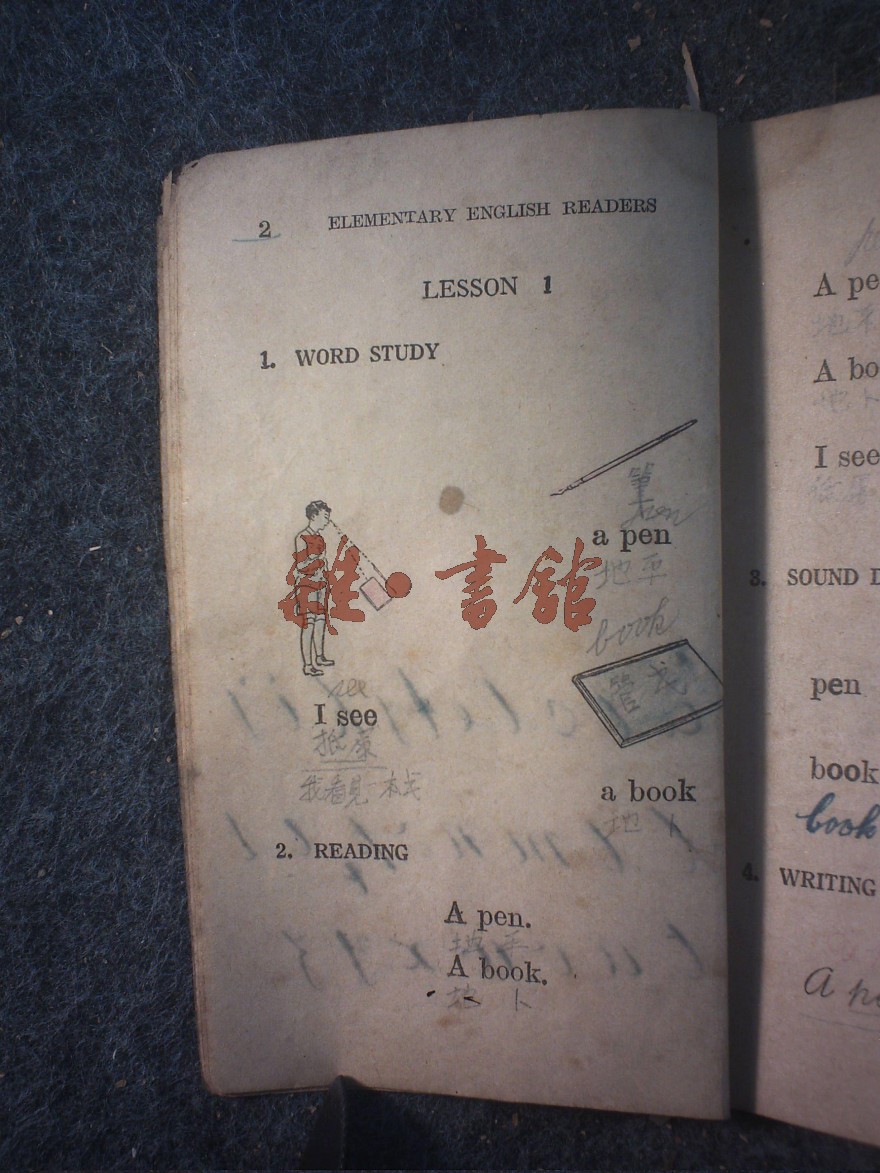 2 ELEMENTARY ENGLISH READERS
LESSON 1
1. WORD STUDY
筆
pen
a pen
地平
book
see
I see
我看見一本
a book
地卜
2. READING
A pen.
地平
A book.
地卜
雜·書館
A pe
地平
A bo
地卜
I see
3. SOUND D
pen
book
book
4. WRITING
A pe